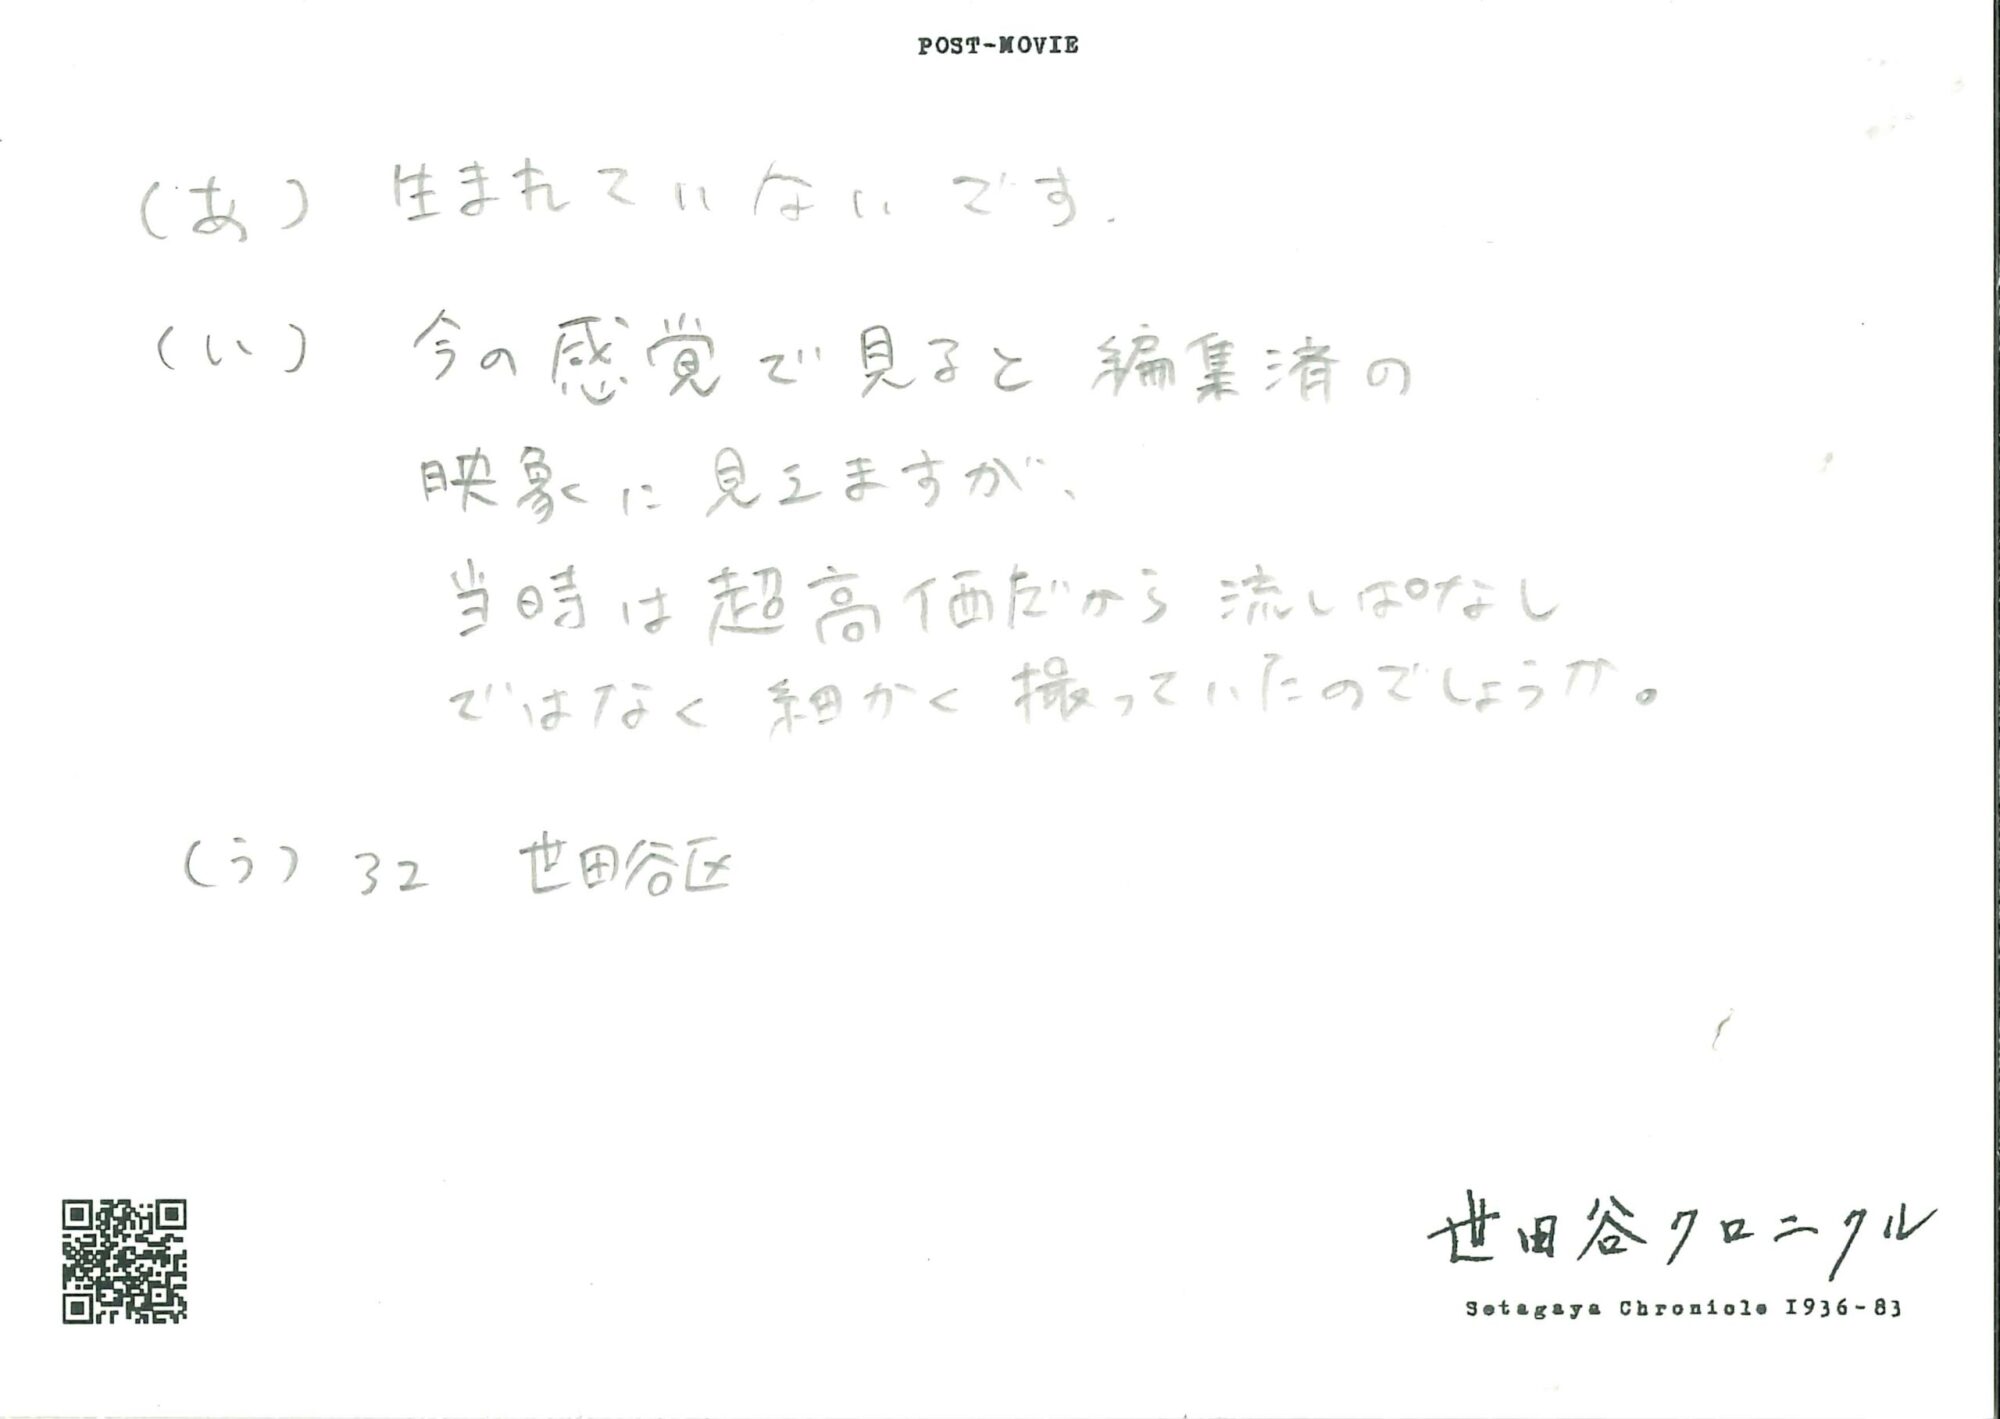 POST-MOVIE
(あ) 生まれていないです.
(い) 今の感覚で見ると編集済の
映象に見えますが、
当時は超高価だから流しぱなし
ではなく細かく撮っていたのでしょうか。
(う) 32 世田谷区
世田谷クロニクル
Setagaya Chronicle 1936-83